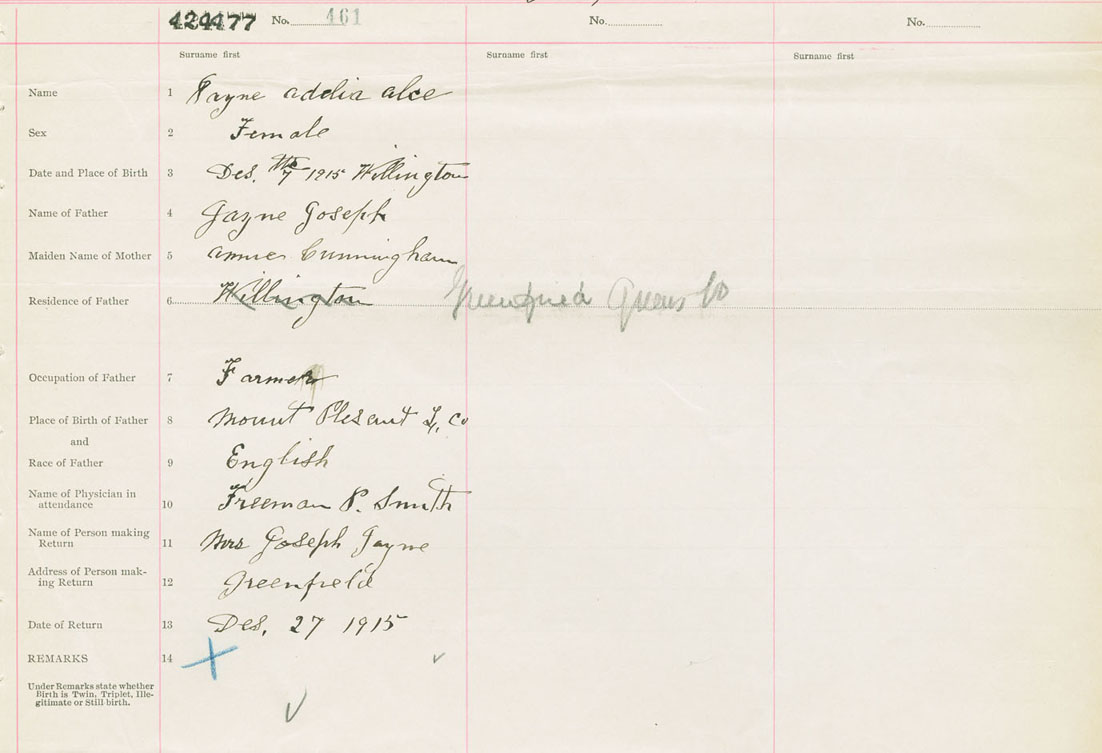 No. 461 No. No.
Surname first Surname first Surname first
Name 1 Jayne addia alce
Sex 2 Female
Date and Place of Birth 3 Des. 7 1915 Willington
Name of Father 4 Jayne Joseph
Maiden Name of Mother 5 annie Cunningham
Residence of Father 6 Willington Greenfield Queens Co
Occupation of Father 7 Farmer
Place of Birth of Father 8 Mount Plesant Co
and
Race of Father 9 English
Name of Physician in
attendance 10 Freeman P. Smith
Name of Person making
Return 11 Mrs Joseph Jayne
Address of Person mak-
ing Return 12 Greenfield
Date of Return 13 Des. 27 1915
REMARKS 14
Under Remarks state whether
Birth is Twin, Triplet, Ille-
gitimate or Still birth.